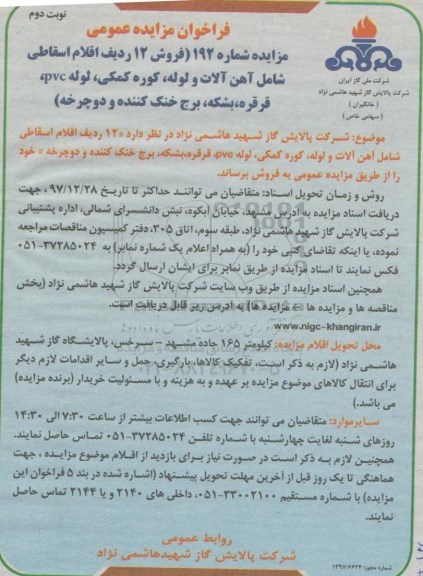 نوبت دوم
فراخوان مزایده عمومی
مزایده شماره ۱۹۲ (فروش ۱۲ ردیف اقلام اسقاطی
شامل آهن آلات و لوله، کوره کمکی، لوله pvc،
قرقره،بشکه، برج خنک کننده و دوچرخه)
شرکت ملی گاز ایران
شرکت پالایش گاز شهید هاشمی نژاد
(خانگیران)
(سهامی خاص)
موضوع: شرکت پالایش گاز شهید هاشمی نژاد در نظر دارد «۱۲ ردیف اقلام اسقاطی
شامل آهن آلات و لوله، کوره کمکی، لوله pvc، قرقره،بشکه، برج خنک کننده و دوچرخه » خود
را از طریق مزایده عمومی به فروش برساند.
روش و زمان تحویل اسناد: متقاضیان می توانند حداکثر تا تاریخ ۹۷/۱۲/۲۸ ، جهت
دریافت اسناد مزایده به آدرس مشهد، خیابان آبکوه، نبش دانشسرای شمالی، اداره پشتیبانی
شرکت پالایش گاز شهید هاشمی نژاد، طبقه سوم، اتاق ۳۰۵، دفتر کمیسیون مناقصات مراجعه
نموده، یا اینکه تقاضای کتبی خود را (به همراه اعلام یک شماره نمابر) به ۳۷۲۸۵۰۲۴-۰۵۱
فکس نمایند تا اسناد مزایده از طریق نمابر برای ایشان ارسال گردد.
همچنین اسناد مزایده از طریق وب سایت شرکت پالایش گاز شهید هاشمی نژاد (بخش
مناقصه ها و مزایده ها – مزایده ها) به آدرس زیر قابل دریافت است.
www.nigc-khangiran.ir
محل تحویل اقلام مزایده: کیلومتر ۱۶۵ جاده مشهد - سرخس، پالایشگاه گاز شهید
هاشمی نژاد (لازم به ذکر است، تفکیک کالاها، بارگیری، حمل و سایر اقدامات لازم دیگر
برای انتقال کالاهای موضوع مزایده بر عهده و به هزینه و با مسئولیت خریدار (برنده مزایده)
می باشد.)
سایرموارد: متقاضیان می توانند جهت کسب اطلاعات بیشتر از ساعت ۷:۳۰ الی ۱۴:۳۰
روزهای شنبه لغایت چهارشنبه با شماره تلفن ۳۷۲۸۵۰۲۴-۰۵۱ تماس حاصل نمایند.
همچنین لازم به ذکر است در صورت نیاز برای بازدید از اقلام موضوع مزایده ، جهت
هماهنگی تا یک روز قبل از آخرین مهلت تحویل پیشنهاد (اشاره شده در بند ۵ فراخوان این
مزایده) با شماره مستقیم ۳۳۰۰۲۱۰۰-۰۵۱، داخلی های ۲۱۴۰ و یا ۲۱۴۴ تماس حاصل
نمایند.
روابط عمومی
شرکت پالایش گاز شهیدهاشمی نژاد
شماره مجوز: ۱۳۹۷/۶۶۲۴